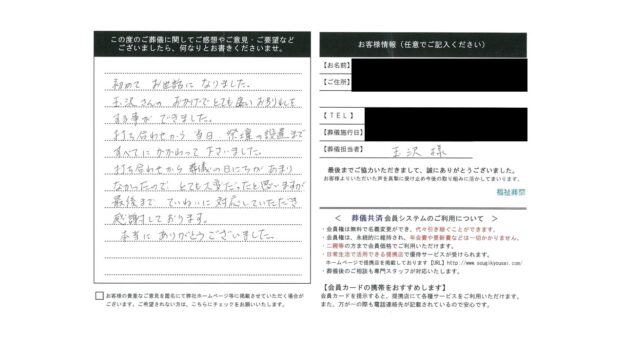 この度のご葬儀に関してご感想やご意見・ご要望など
ございましたら、何なりとお書きくださいませ。
初めて お世話に なりました。
玉沢さんの おかげで とても良いお別れを
する事が できました。
打ち合わせから 当日 祭壇の設置まで
すべてに かかわって 下さいました。
打ち合わせから 葬儀の日にちが あまり
なかったので とても大変だったと思いますが
最後まで ていねいに 対応していただき
感謝しております。
本当に ありがとうございました。
お客様の貴重なご意見を匿名にて弊社ホームページ等に掲載させていただく場合が
ございます。ご希望されない方は、こちらにチェックをお願いいたします。
お客様情報（任意でご記入ください）
【お名前】
【ご住所】
【ＴＥＬ】
【葬儀施行日】
【葬儀担当者】 玉沢 様
最後までご協力いただきまして、誠にありがとうございました。
お客様よりいただいた声を真摯に受け止め今後の取り組みに活かしてまいります。
福祉葬祭
＜ 葬儀共済会員システムのご利用について ＞
・会員権は無料で名義変更ができ、代々引き継ぐことができます。
・会員権は、永続的に維持され、年会費や更新費などは一切かかりません。
・二親等の方まで会員価格でご利用いただけます。
・日常生活で活用できる提携店で優待サービスが受けられます。
ホームページで提携店を掲載しております【URL】http://www.sougikyousai.com/
・葬儀後のご相談も専門スタッフが対応いたします。
【会員カードの携帯をおすすめします】
会員カードを提示すると、提携店にて各種サービスをご利用いただけます。
また、万が一の際も電話連絡先が記載されているので安心です。